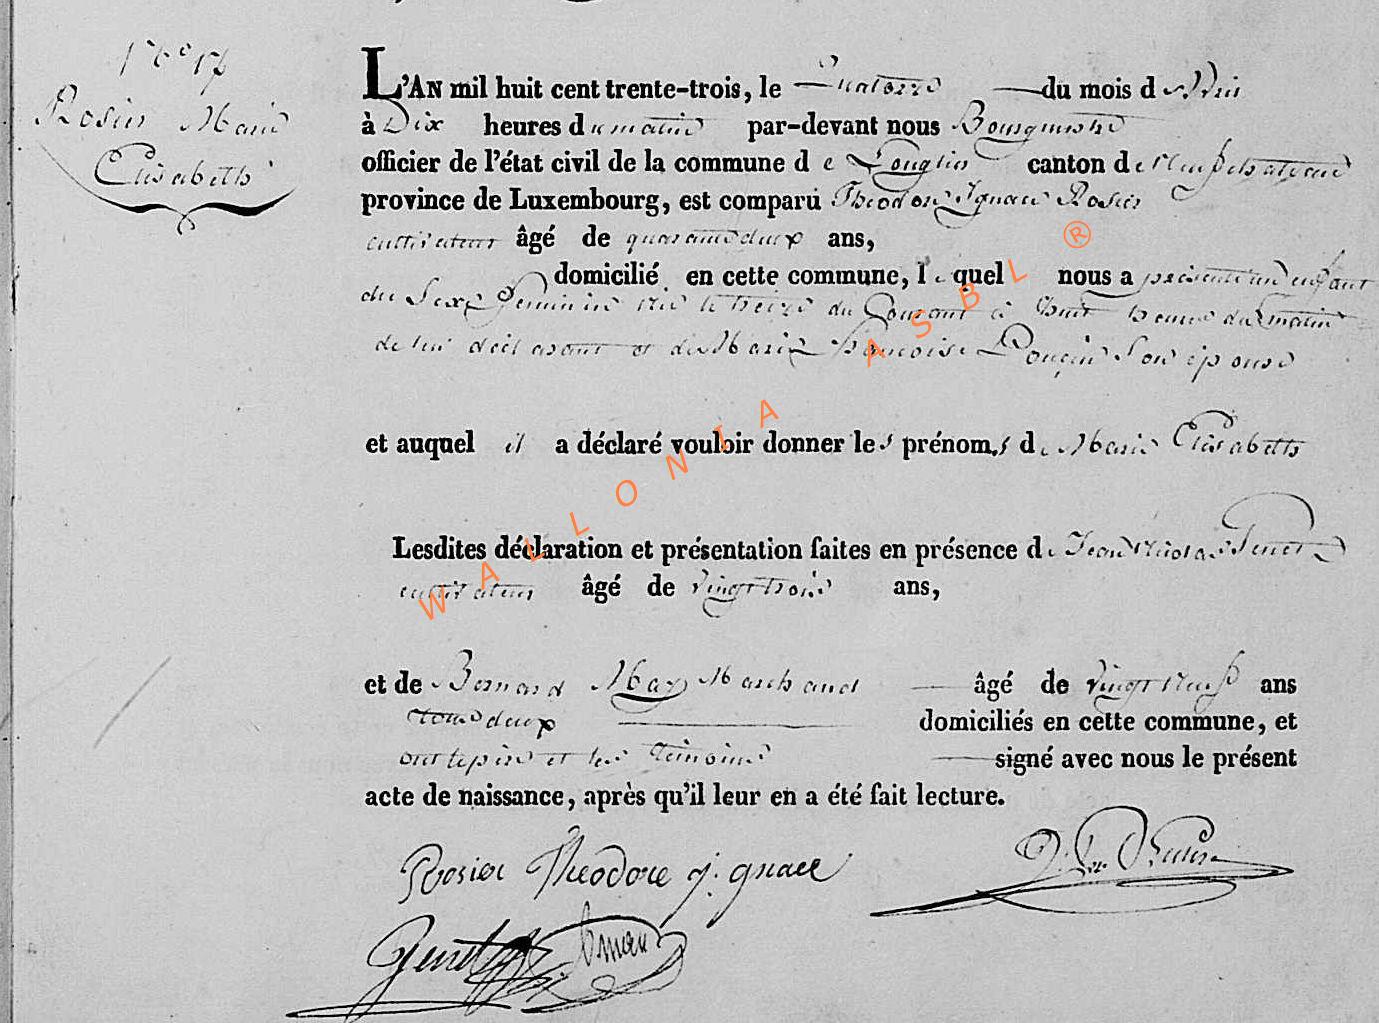 Rosier Marie
Elisabeth
L'AN mil huit cent trente-trois, le Quatorze du mois d'Avril
à Dix heures du matin par-devant nous Bourgmestre
officier de l'état civil de la commune de Longlier canton de Neufchateau
province de Luxembourg, est comparu Théodore Ignace Rosier
cultivateur âgé de quarante deux ans,
domicilié en cette commune, lequel nous a présenté un enfant
du Sexe feminin né le treize du Courant à huit heures du matin
de lui déclarant et de Marie françoise Pouçin Son épouse
et auquel il a déclaré vouloir donner les prénoms de Marie Elisabeth
Lesdites déclaration et présentation faites en présence de Jean Nicolas Genet
cultivateur âgé de vingt trois ans,
et de Bernard May Marchand âgé de vingt neuf ans
tous deux domiciliés en cette commune, et
ont le père et les témoins signé avec nous le présent
acte de naissance, après qu'il leur en a été fait lecture.
Rosier Théodore j. gnace
Genet bmay
WALLONIA ASBL ®